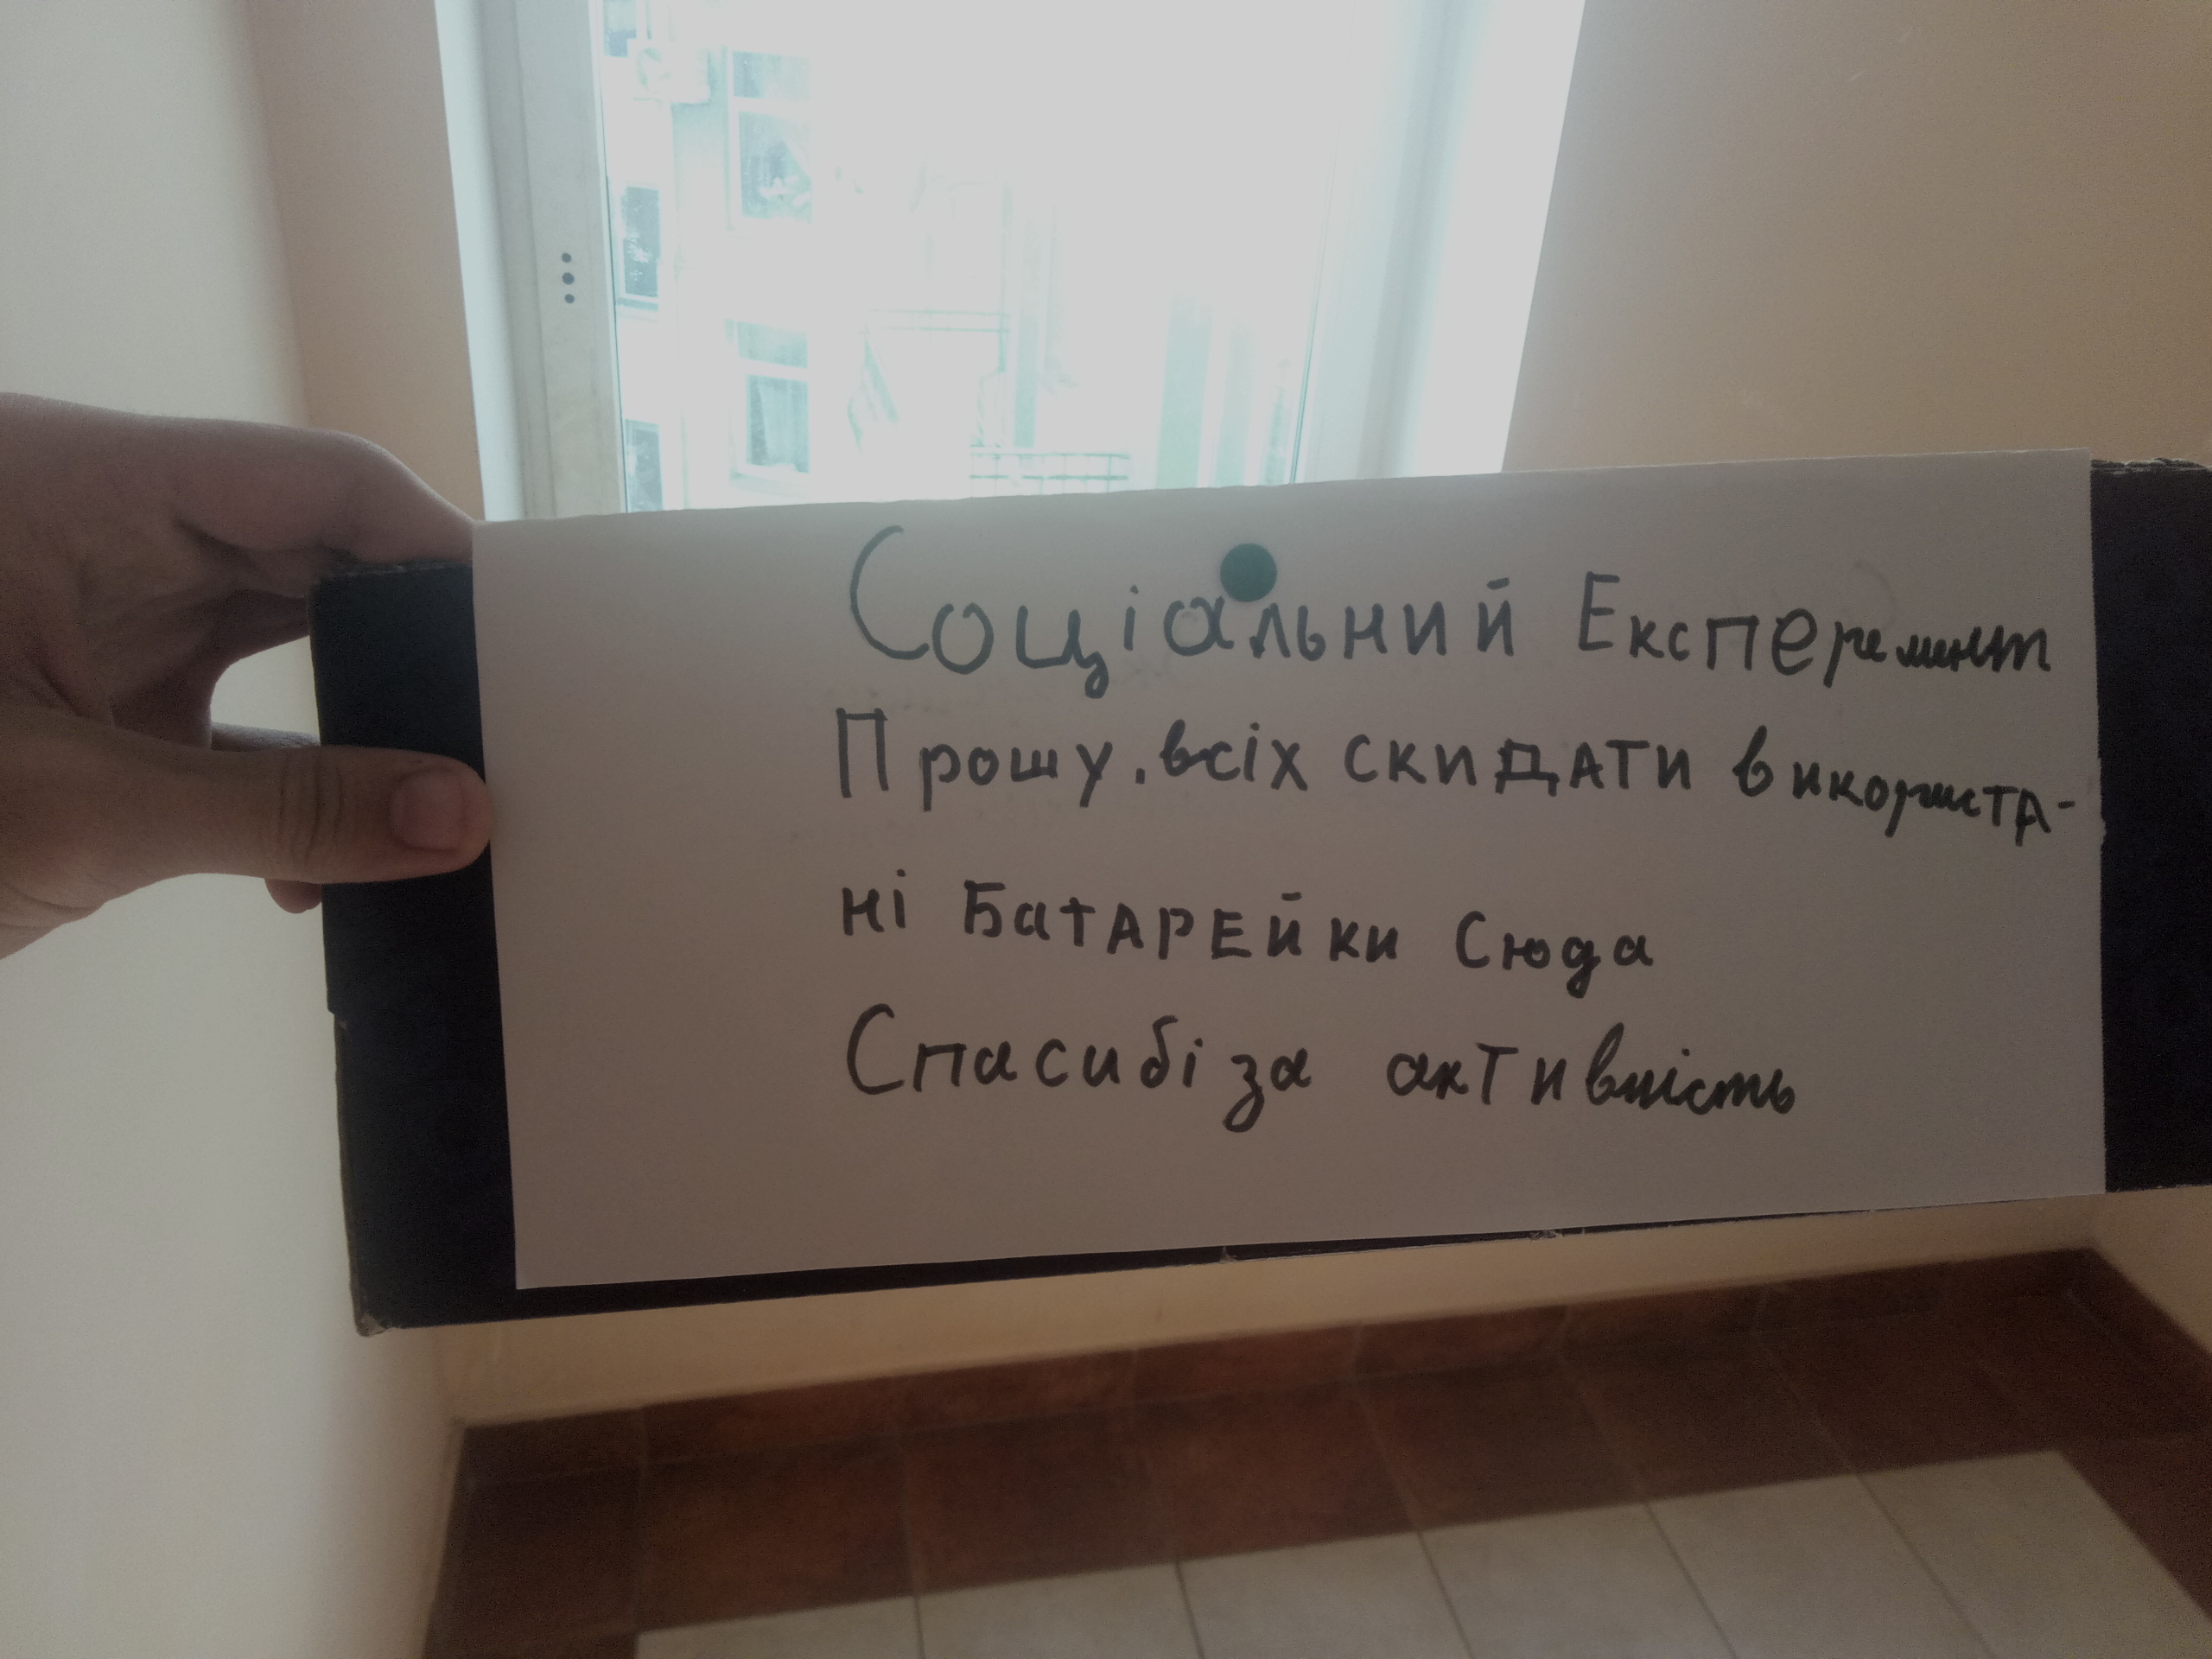 Соціальний Експеремент
Прошу. всіх скидати використа-
ні Батарейки Сюда
Спасибі за активність